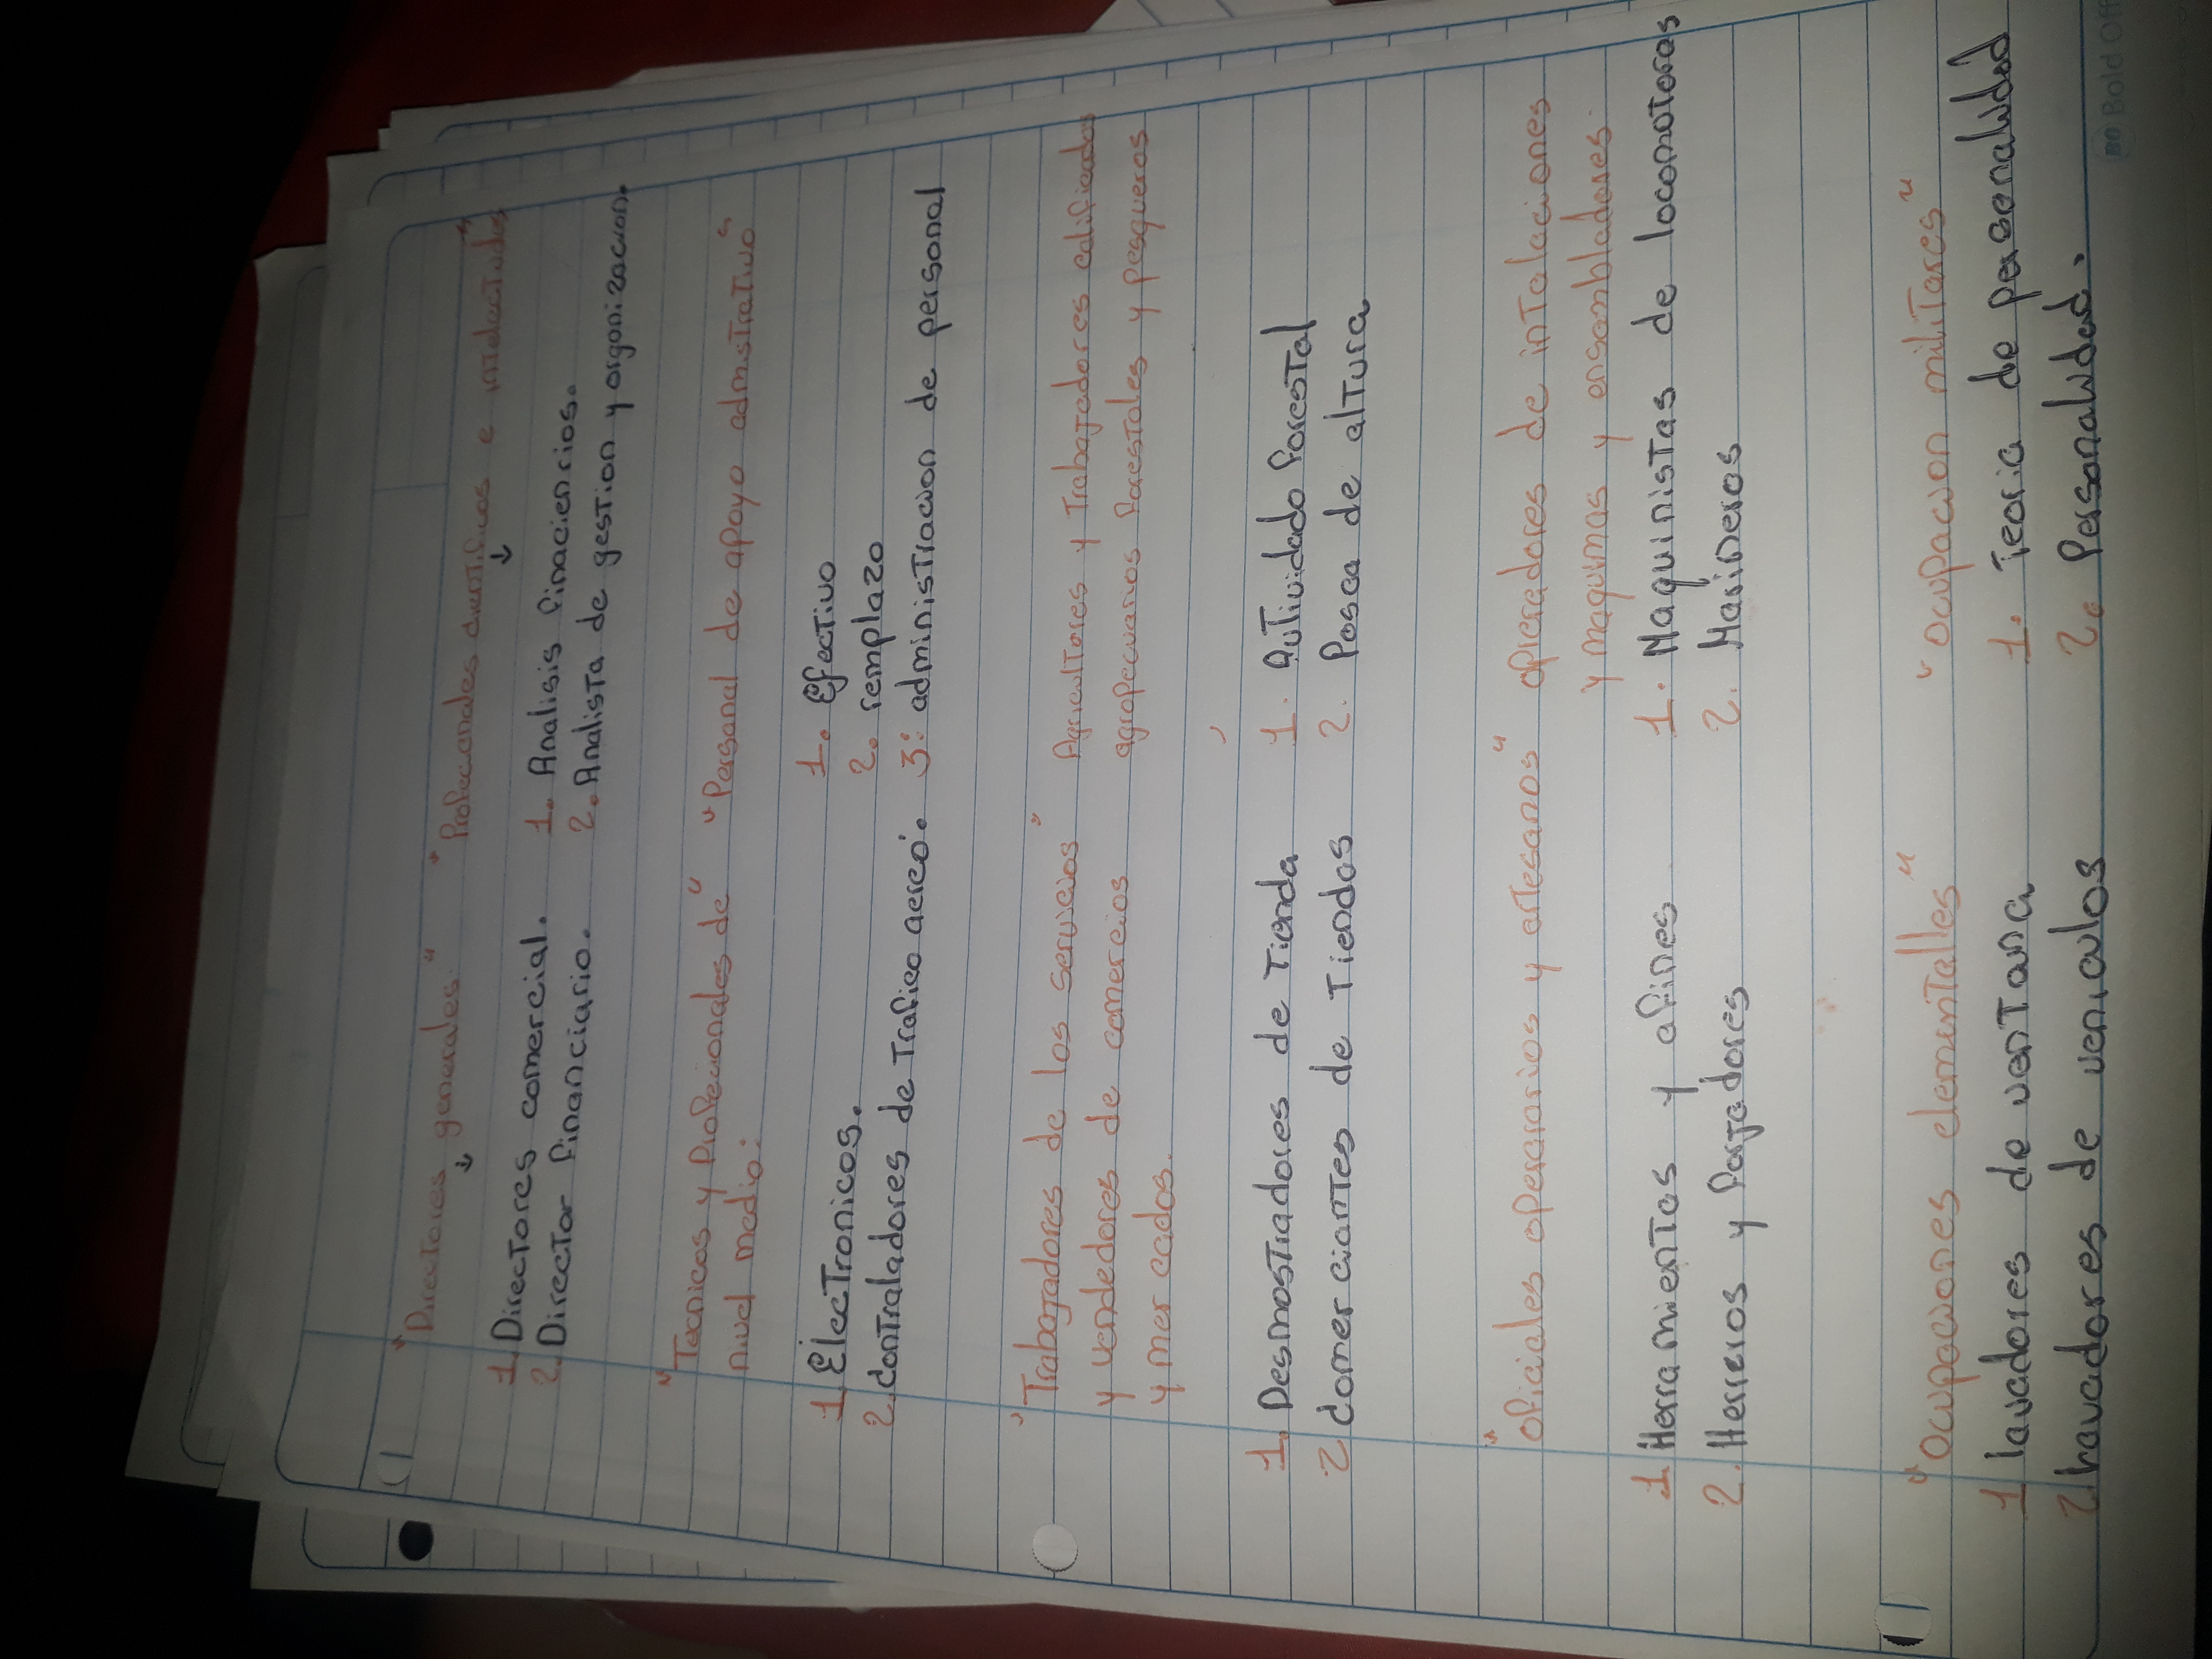 "Directores generales." "Profecionales cientificos e intelectudes"
↓ ↓
1. Directores comercial. 1. Analisis finaciencios.
2. Director financiario. 2. Analista de gestion y organizacion.
"Tecnicos y Profecionales de" "Personal de apoyo admistrativo"
nivel medio:
1. Electronicos. 1. Efectivo
2. contraladores de Trafico aereó. 2. remplazo
3: administracion de personal
"Trabajadores de los servicios" Agricultores y Trabajadores calificados
y vendedores de comercios agropecuarios Forestales y pesqueros
y mercados.
1. Desmostradores de Tienda 1. Autividado forestal
2 comerciantes de Tiendas 2. Pesca de altura
"oficiales operarios y artesanos" operadores de intalaciones
y maquinas y ensambladores.
1. Herramientas y afines 1. Maquinistas de locomotoras
2. Herreros y Forjadores 2. Marineros
"Ocupaciones elemintalles" "ocupacion militares"
1 lavadores de ventana 1. Teoria de personalidad
2 lavadores de veniculos 2. Personalidad.
Bold Off